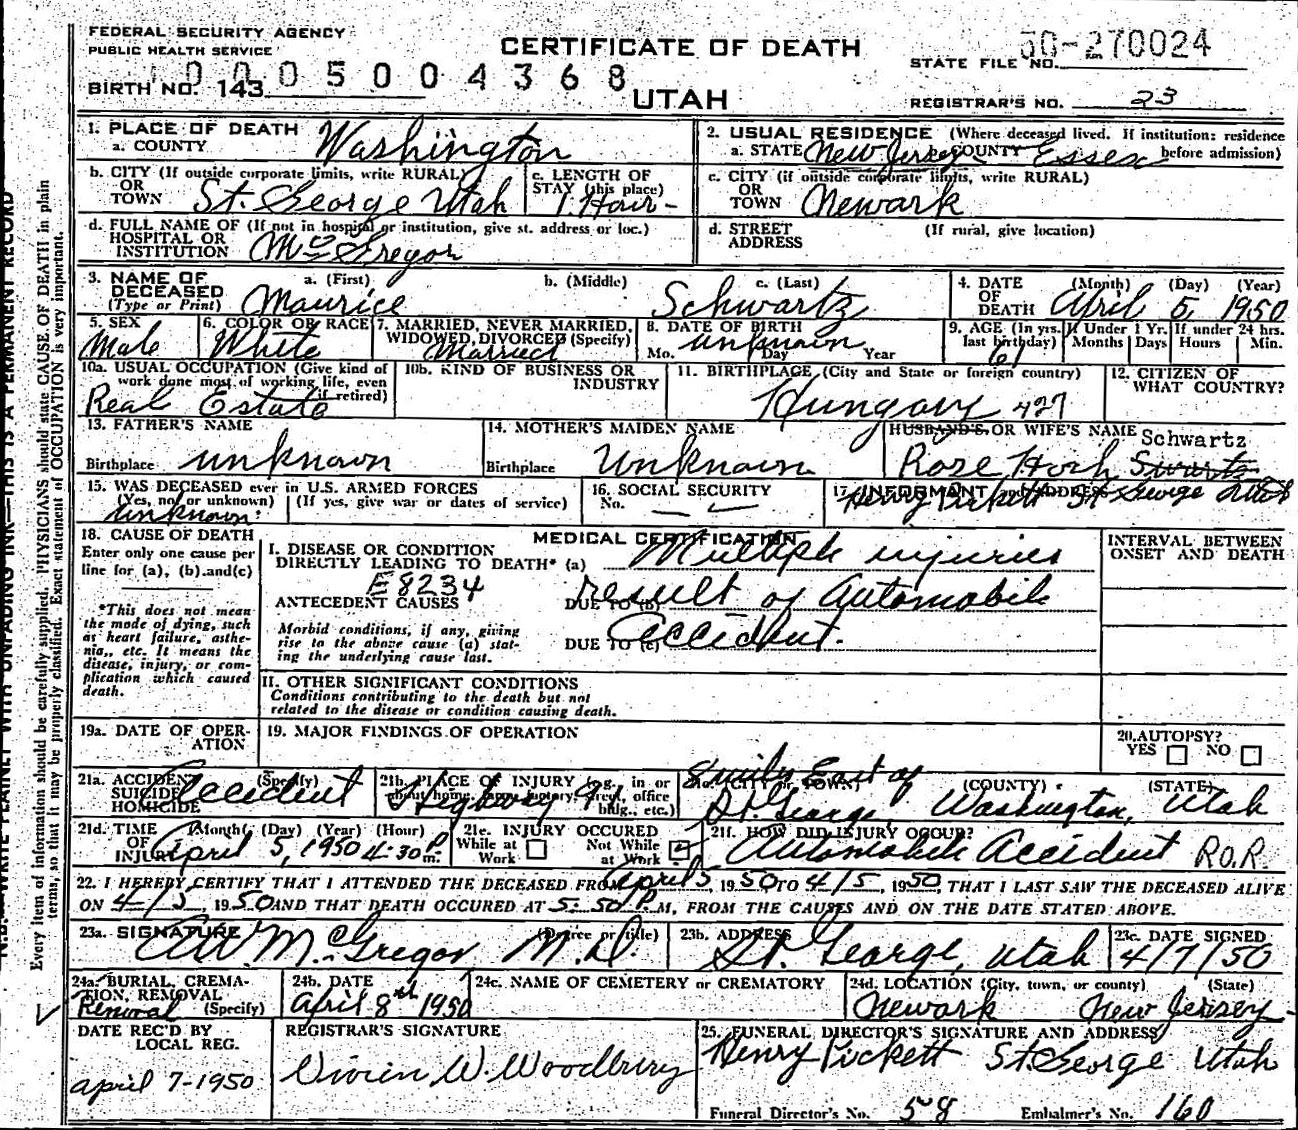 FEDERAL SECURITY AGENCY
PUBLIC HEALTH SERVICE
CERTIFICATE OF DEATH
UTAH
STATE FILE NO. 50-270024
10005004368
BIRTH NO. 143
REGISTRAR'S NO. 23
N.B. WRITE PLAINLY WITH UNFADING INK—THIS IS A PERMANENT RECORD
Every item of information should be carefully supplied. PHYSICIANS should state CAUSE OF DEATH in plain
terms, so that it may be properly classified. Exact statement of OCCUPATION is very important.
1. PLACE OF DEATH
a. COUNTY Washington
2. USUAL RESIDENCE (Where deceased lived. If institution: residence
before admission)
a. STATE New Jersey COUNTY Essex
b. CITY (If outside corporate limits, write RURAL)
OR
TOWN St. George Utah
c. LENGTH OF
STAY (this place)
1 Hour-
c. CITY (if outside corporate limits, write RURAL)
OR
TOWN Newark
d. FULL NAME OF (If not in hospital or institution, give st. address or loc.)
HOSPITAL OR
INSTITUTION McGregor
d. STREET (If rural, give location)
ADDRESS
3. NAME OF
DECEASED
(Type or Print)
a. (First) b. (Middle) c. (Last)
Maurice Schwartz
4. DATE
OF
DEATH
(Month) (Day) (Year)
April 5, 1950
5. SEX
Male
6. COLOR OR RACE
White
7. MARRIED, NEVER MARRIED,
WIDOWED, DIVORCED (Specify)
Married
8. DATE OF BIRTH
unknown
Mo. Day Year
9. AGE (In yrs.
last birthday)
61
If Under 1 Yr.
Months Days
If under 24 hrs.
Hours Min.
10a. USUAL OCCUPATION (Give kind of
work done most of working life, even
if retired)
Real Estate
10b. KIND OF BUSINESS OR
INDUSTRY
11. BIRTHPLACE (City and State or foreign country)
Hungary 427
12. CITIZEN OF
WHAT COUNTRY?
13. FATHER'S NAME
Birthplace unknown
14. MOTHER'S MAIDEN NAME
Birthplace Unknown
HUSBAND'S OR WIFE'S NAME Schwartz
Rose Horh Swartz
15. WAS DECEASED ever in U.S. ARMED FORCES
(Yes, no, or unknown) (If yes, give war or dates of service)
unknown
16. SOCIAL SECURITY
No.
17. INFORMANT and ADDRESS
Henry Pickett St George Utah
18. CAUSE OF DEATH
Enter only one cause per
line for (a), (b) and (c)
*This does not mean
the mode of dying, such
as heart failure, asthe-
nia, etc. It means the
disease, injury, or com-
plication which caused
death.
MEDICAL CERTIFICATION
I. DISEASE OR CONDITION
DIRECTLY LEADING TO DEATH* (a) Multiple injuries
E8234
ANTECEDENT CAUSES DUE TO (b) result of Automobile
Morbid conditions, if any, giving
rise to the above cause (a) stat-
ing the underlying cause last.
DUE TO (c) Accident.
INTERVAL BETWEEN
ONSET AND DEATH
II. OTHER SIGNIFICANT CONDITIONS
Conditions contributing to the death but not
related to the disease or condition causing death.
19a. DATE OF OPER-
ATION
19. MAJOR FINDINGS OF OPERATION
20. AUTOPSY?
YES NO
21a. ACCIDENT (Specify)
SUICIDE
HOMICIDE
Accident
21b. PLACE OF INJURY (e.g., in or
about home, farm, factory, street, office
bldg., etc.)
Highway 91
(CITY OR TOWN) (COUNTY) (STATE)
East of
St. George, Washington, Utah
21d. TIME
OF
INJURY
(Month) (Day) (Year) (Hour)
April 5, 1950 4:30 P m.
21e. INJURY OCCURED
While at Work Not While at Work
21f. HOW DID INJURY OCCUR?
Automobile Accident R.O.R.
22. I HEREBY CERTIFY THAT I ATTENDED THE DECEASED FROM April 5, 1950 TO 4/5, 1950, THAT I LAST SAW THE DECEASED ALIVE
ON 4/5, 1950 AND THAT DEATH OCCURED AT 5:50 P.M, FROM THE CAUSES AND ON THE DATE STATED ABOVE.
23a. SIGNATURE (Degree or title)
AW. McGregor M.D.
23b. ADDRESS
St. George, Utah
23c. DATE SIGNED
4/7/50
24a. BURIAL, CREMA-
TION, REMOVAL
(Specify)
Removal
24b. DATE
April 8th 1950
24c. NAME OF CEMETERY or CREMATORY
24d. LOCATION (City, town, or county) (State)
Newark New Jersey-
DATE REC'D BY
LOCAL REG.
april 7-1950
REGISTRAR'S SIGNATURE
Vivien W. Woodbury
25. FUNERAL DIRECTOR'S SIGNATURE AND ADDRESS
Henry Pickett St. George Utah
Funeral Director's No. 58 Embalmer's No. 160